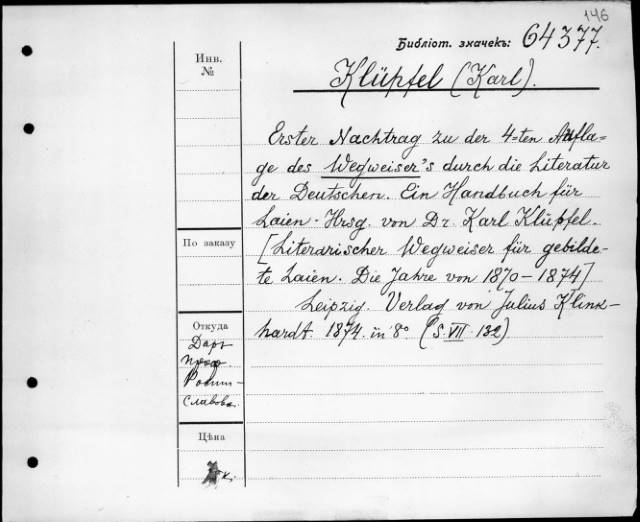 146
Библіот. значекъ: 64377.
Инв. №
Klüpfel (Karl).
Erster Nachtrag zu der 4=ten Aufla=
ge des Wegweiser's durch die Literatur
der Deutschen. Ein Handbuch für
Laien. Hrsg. von Dr. Karl Klüpfel.
[Literarischer Wegweiser für gebilde-
te Laien. Die Jahre von 1870-1874]
Leipzig. Verlag von Julius Klink-
hardt. 1874. in 8° (S. VII. 132)
По заказу
Откуда
Даръ
проф.
славова.
Цѣна
к.